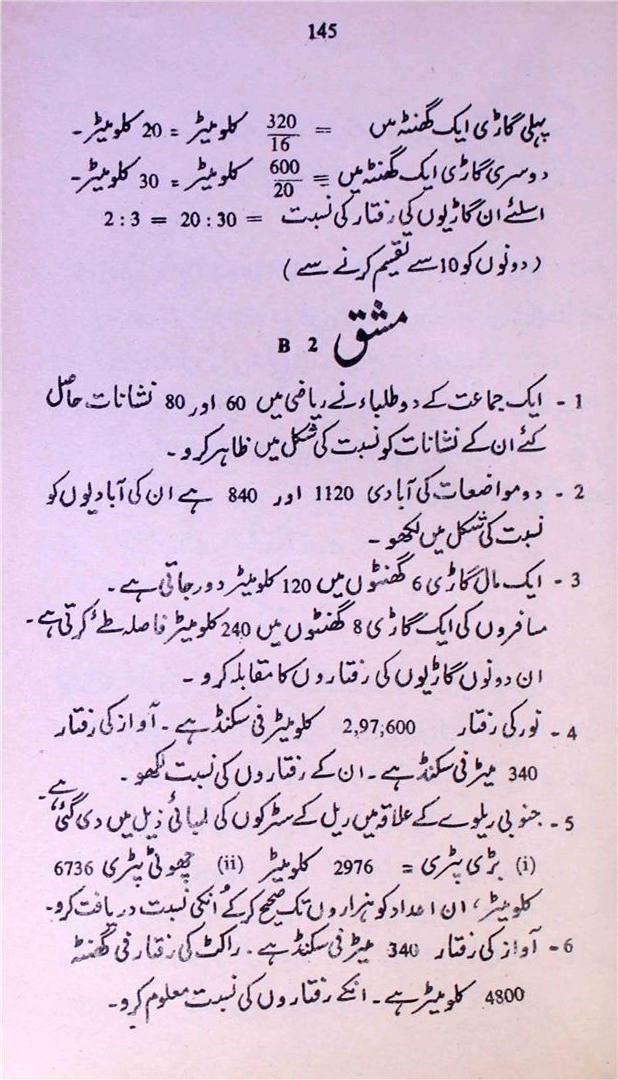 145
پہلی گاڑی ایک گھنٹہ میں = 320/16 کلومیٹر = 20 کلومیٹر۔
دوسری گاڑی ایک گھنٹہ میں = 600/20 کلومیٹر = 30 کلومیٹر۔
اسلئے ان گاڑیوں کی رفتار کی نسبت = 20 : 30 = 2 : 3
( دونوں کو 10 سے تقسیم کرنے سے )
مشق B 2
1 - ایک جماعت کے دو طلباء نے ریاضی میں 60 اور 80 نشانات حاصل
کئے ان کے نشانات کو نسبت کی شکل میں ظاہر کرو۔
2 - دو مواضعات کی آبادی 1120 اور 840 ہے ان کی آبادیوں کو
نسبت کی شکل میں لکھو۔
3 - ایک مال گاڑی 6 گھنٹوں میں 120 کلومیٹر دور جاتی ہے۔
مسافروں کی ایک گاڑی 8 گھنٹوں میں 240 کلومیٹر فاصلہ طئے کرتی ہے۔
ان دونوں گاڑیوں کی رفتاروں کا مقابلہ کرو۔
4 - نور کی رفتار 2,97,600 کلومیٹر فی سکنڈ ہے۔ آواز کی رفتار
340 میٹر فی سکنڈ ہے۔ ان کے رفتاروں کی نسبت لکھو۔
5 - جنوبی ریلوے کے علاقہ میں ریل کے سڑکوں کی لمبائی ذیل میں دی گئی ہے۔
(i) بڑی پٹری = 2976 کلومیٹر (ii) چھوٹی پٹری 6736
کلومیٹر، ان اعداد کو ہزاروں تک صحیح کرکے اُنکی نسبت دریافت کرو۔
6 - آواز کی رفتار 340 میٹر فی سکنڈ ہے۔ راکٹ کی رفتار فی گھنٹہ
4800 کلومیٹر ہے۔ انکے رفتاروں کی نسبت معلوم کرو۔